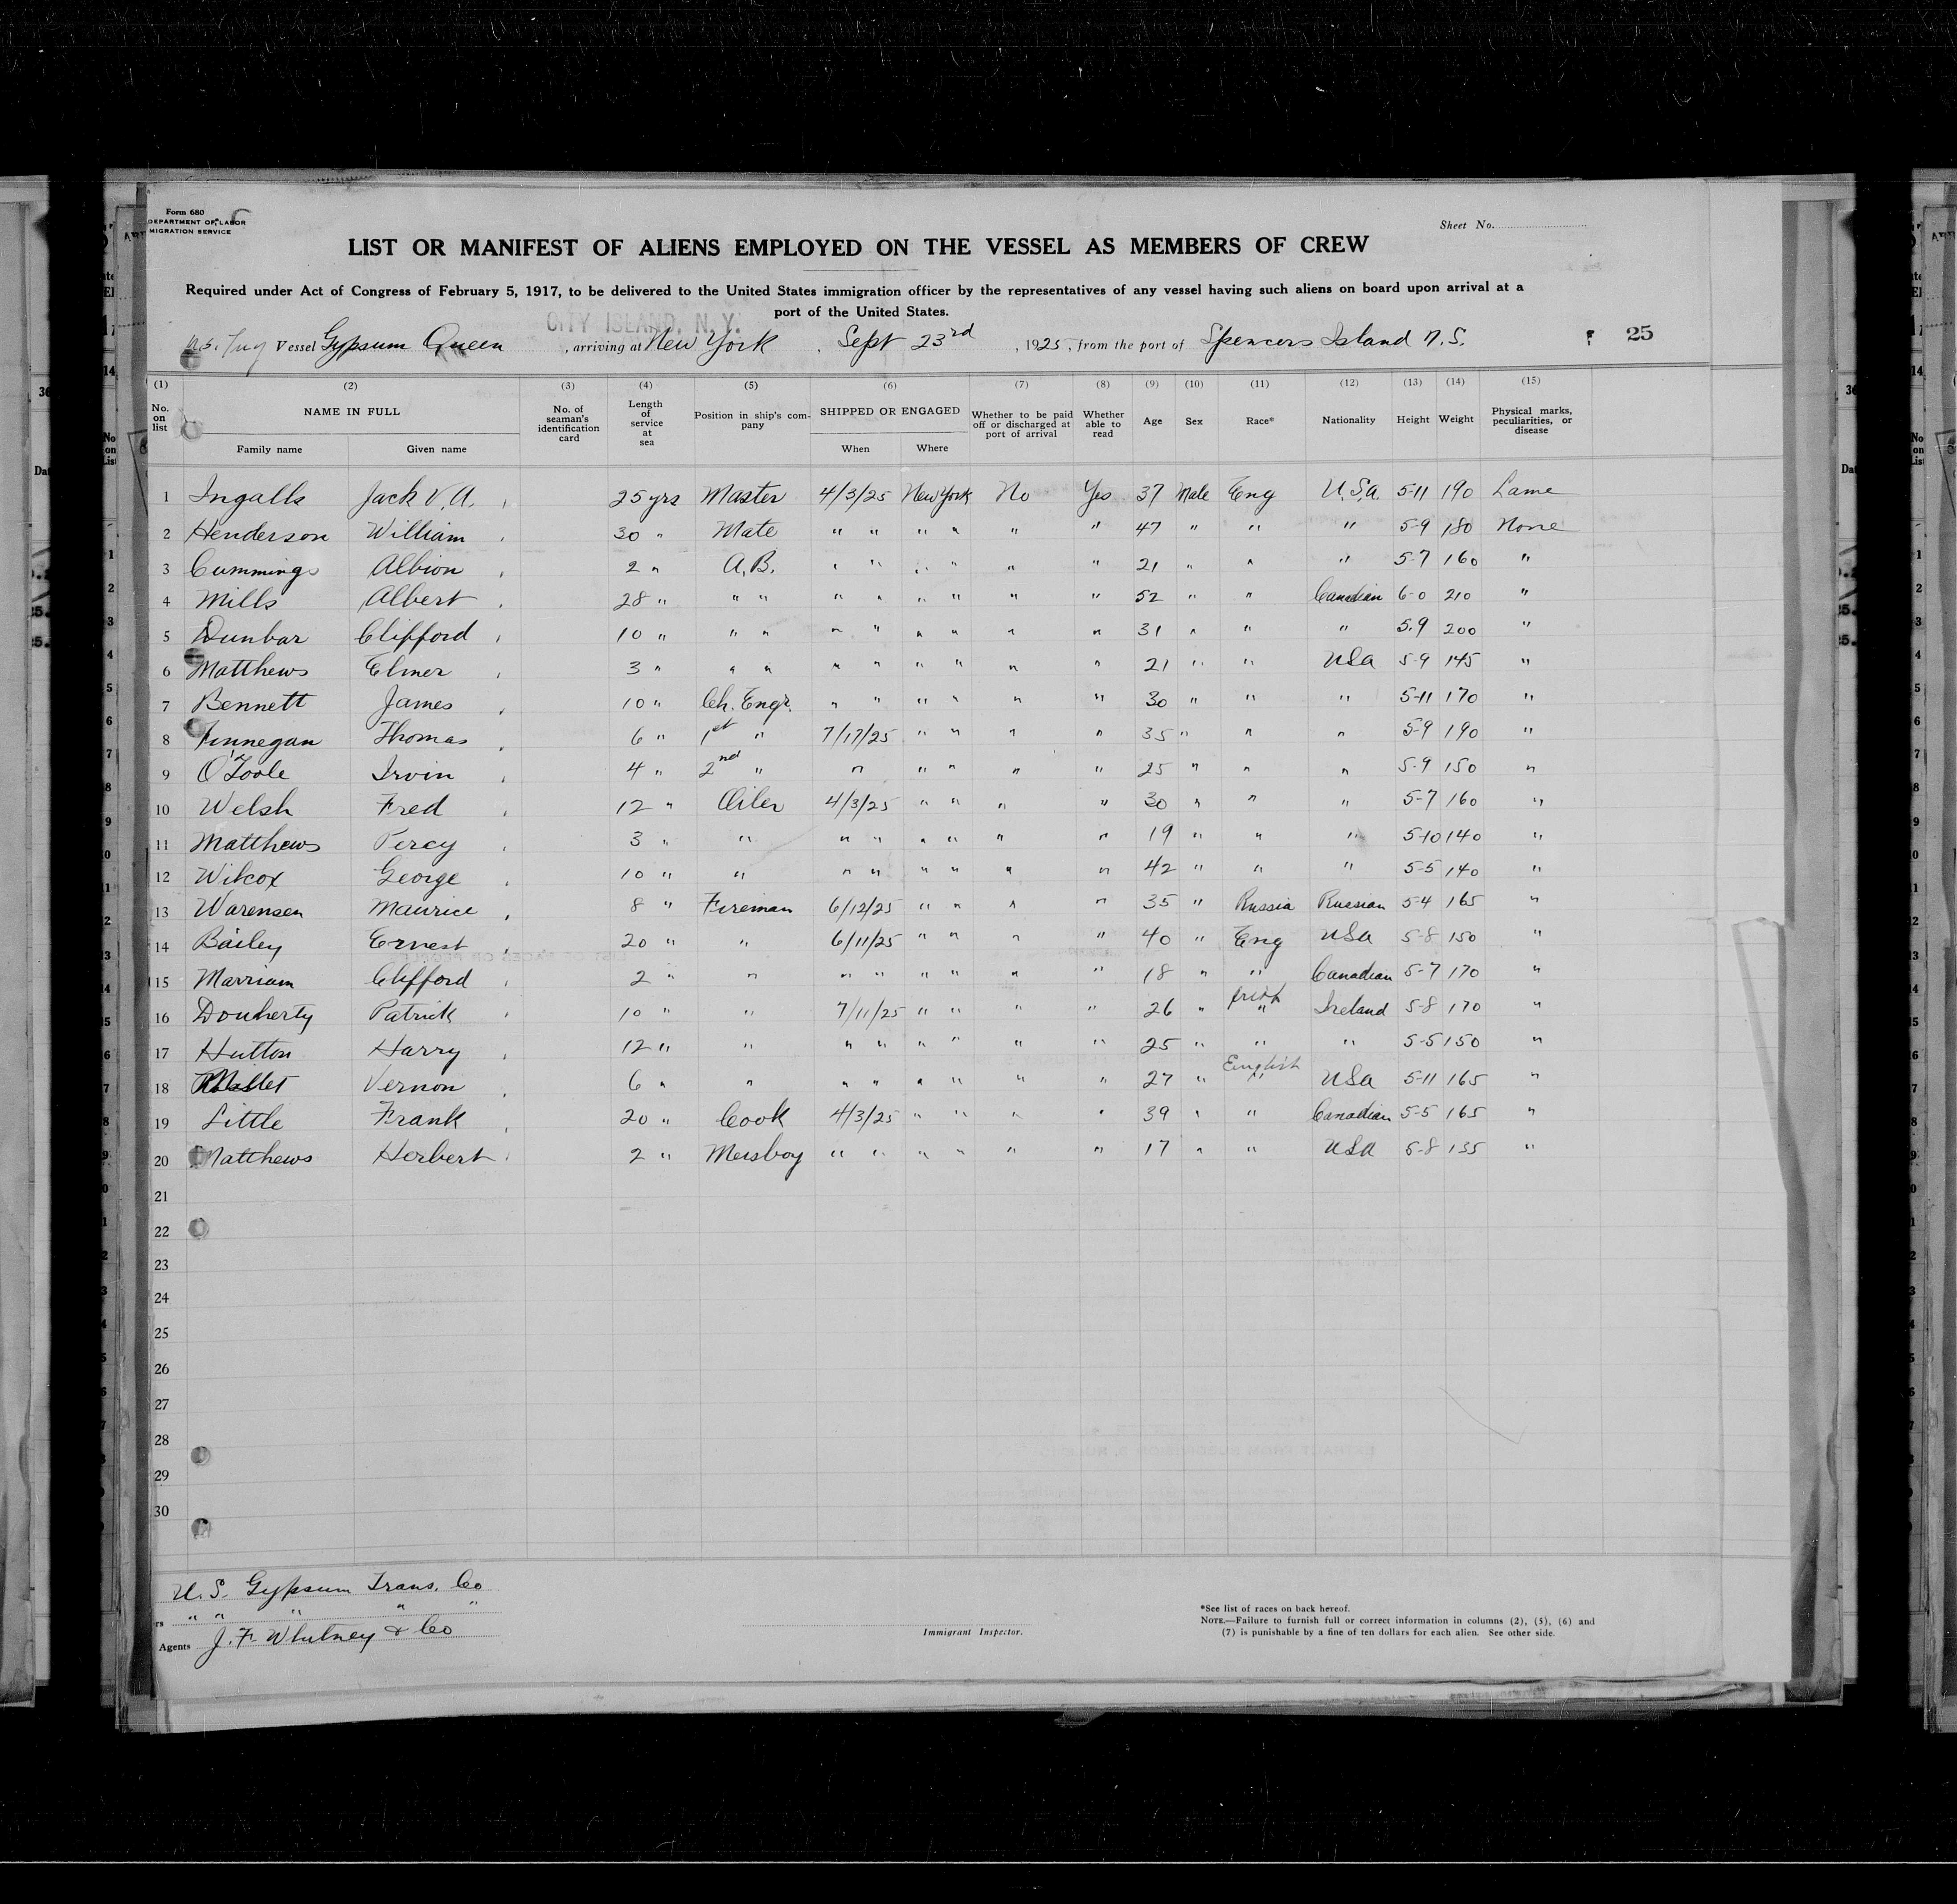 Form 680
DEPARTMENT OF LABOR
MIGRATION SERVICE
Sheet No.
LIST OR MANIFEST OF ALIENS EMPLOYED ON THE VESSEL AS MEMBERS OF CREW
Required under Act of Congress of February 5, 1917, to be delivered to the United States immigration officer by the representatives of any vessel having such aliens on board upon arrival at a
port of the United States.
CITY ISLAND, N. Y.
Tug Vessel Gypsum Queen, arriving at New York, Sept 23rd, 1925, from the port of Spencers Island N.S. 25
(1) (2) (3) (4) (5) (6) (7) (8) (9) (10) (11) (12) (13) (14) (15)
No. on list NAME IN FULL No. of seaman's identification card Length of service at sea Position in ship's company SHIPPED OR ENGAGED Whether to be paid off or discharged at port of arrival Whether able to read Age Sex Race* Nationality Height Weight Physical marks, peculiarities, or disease
Family name Given name When Where
1 Ingalls Jack V.A. 25 yrs Master 4/3/25 New York No Yes 37 Male Eng U.S.A. 5-11 190 Lame
2 Henderson William 30 " Mate " " " " " " 47 " " " 5-9 180 None
3 Cummings Albion 2 " A.B. " " " " " " 21 " " " 5-7 160 "
4 Mills Albert 28 " " " " " " " " " 52 " " Canadian 6-0 210 "
5 Dunbar Clifford 10 " " " " " " " " " 31 " " " 5.9 200 "
6 Matthews Elmer 3 " " " " " " " " " 21 " " USA 5-9 145 "
7 Bennett James 10 " Ch. Engr. " " " " " " 30 " " " 5-11 170 "
8 Finnegan Thomas 6 " 1st " 7/17/25 " " " " 35 " " " 5-9 190 "
9 O'Toole Irvin 4 " 2nd " " " " " " 25 " " " 5-9 150 "
10 Welsh Fred 12 " Oiler 4/3/25 " " " " 30 " " " 5-7 160 "
11 Matthews Percy 3 " " " " " " " " 19 " " " 5-10 140 "
12 Wilcox George 10 " " " " " " " " 42 " " " 5-5 140 "
13 Warensen Maurice 8 " Fireman 6/12/25 " " " " 35 " Russia Russian 5-4 165 "
14 Bailey Ernest 20 " " 6/11/25 " " " " 40 " Eng USA 5-8 150 "
15 Marriam Clifford 2 " " " " " " " " 18 " " Canadian 5-7 170 "
16 Douherty Patrick 10 " " 7/11/25 " " " " 26 " Irish " Ireland 5-8 170 "
17 Hutton Harry 12 " " " " " " " " 25 " " " 5-5 150 "
18 Vernon 6 " " " " " " " " 27 " English " USA 5-11 165 "
19 Little Frank 20 " Cook 4/3/25 " " " " 39 " " Canadian 5-5 165 "
20 Matthews Herbert 2 " Messboy " " " " " " 17 " " USA 5-8 135 "
21
22
23
24
25
26
27
28
29
30
U.S. Gypsum Trans. Co
rs " " " " "
Agents J. F. Whitney & Co
Immigrant Inspector.
*See list of races on back hereof.
NOTE.—Failure to furnish full or correct information in columns (2), (5), (6) and
(7) is punishable by a fine of ten dollars for each alien. See other side.